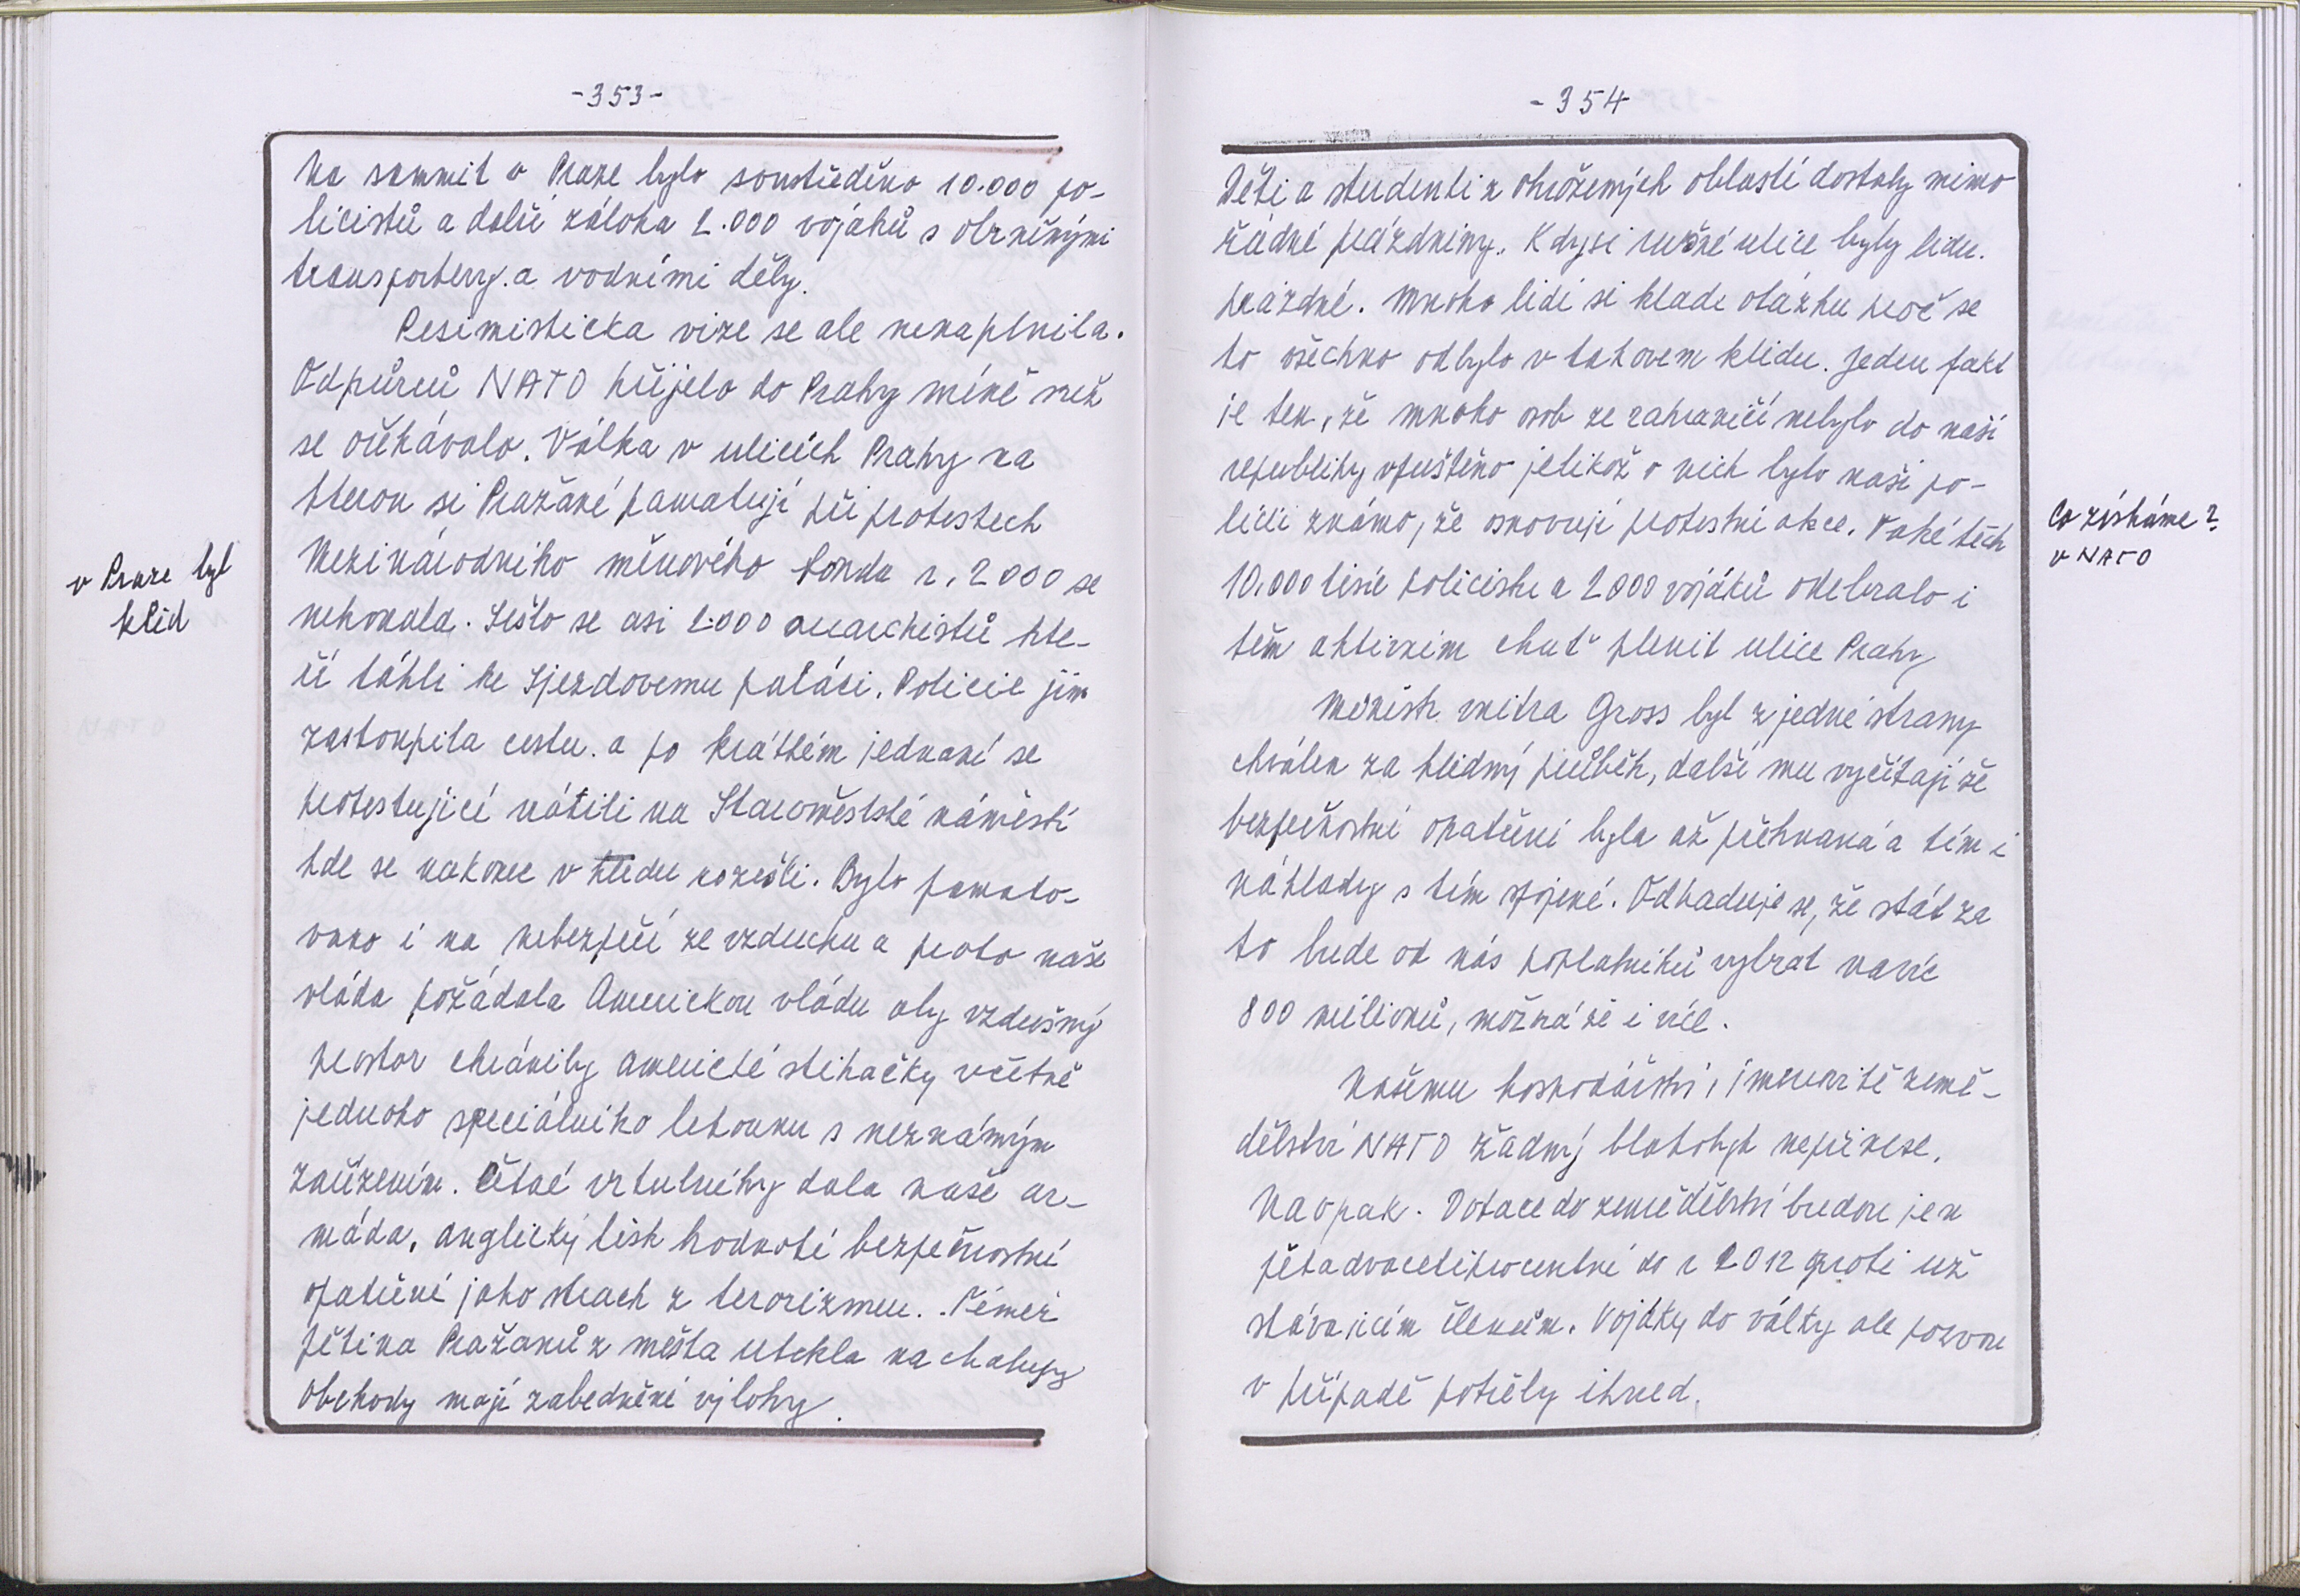 -353-
Na summit v Praze bylo soustředěno 10.000 po-
licistů a další záloha 2.000 vojáků s obrněnými
transportery. a vodními děly.
Pesimisticka vize se ale nenaplnila.
Odpůrců NATO přijelo do Prahy méně než
se očekávalo. Válka v ulicích Prahy na
kterou si Pražané pamatují při protestech
Mezinárodního měnového fondu r. 2000 se
nekonala. Sešlo se asi 2.000 anarchistů kte-
ří táhli ke Sjezdovemu paláci. Policie jim
zastoupila cestu. a po krátkém jednaní se
protestující vrátili na Staroměstské náměstí
kde se nakonec v klidu rozešli. Bylo pamato-
vano i na nebezpečí ze vzduchu a proto naše
vláda požádala Americkou vládu aby vzdušný
prostor chránily americké stihačky včetně
jednoho speciálního letounu s neznámým
zařízením. Četné vrtulníky dala naše ar-
máda. anglický tisk hodnotí bezpečnostní
opatření jako strach z terorizmu. Téměř
pětina Pražanů z města utekla na chalupy
Obchody mají zabedněné výlohy.
v Praze byl
klid
-354
Děti a studenti z ohrožených oblastí dostaly mimo
řádné prázdniny. Kdysi rušné ulice byly lidu.
prázdné. Mnoho lidí si klade otázku proč se
to všechno odbylo v takovem klidu. Jeden fakt
je ten, že mnoho osob ze zahraničí nebylo do naší
republiky vpuštěno jelikož o nich bylo naší po-
licii známo, že osnovují protestní akce. Také těch
10.000 tisíc policistu a 2000 vojáků odebralo i
těm aktivním chuť plenit ulice Prahy
Ministr vnitra Gross byl z jedné strany
chválen za klidný průběh, další mu vyčítají že
bezpečnostní opatření byla až přehnaná a tím i
náklady s tím spojené. Odhaduje se, že stát za
to bude od nás poplatníků vybrat navíc
800 milionů, možná že i víc.
Našemu hospodářství, jmenovitě země-
dělství NATO žadný blahobyt nepřinese.
Naopak. Dotace do zemědělství budou jen
pětadvacetiprocentní do r 2012 proti už
stávajicím členům. Vojáky do války ale pozvou
v případě potřeby ihned.
Co získáme?
v NATO